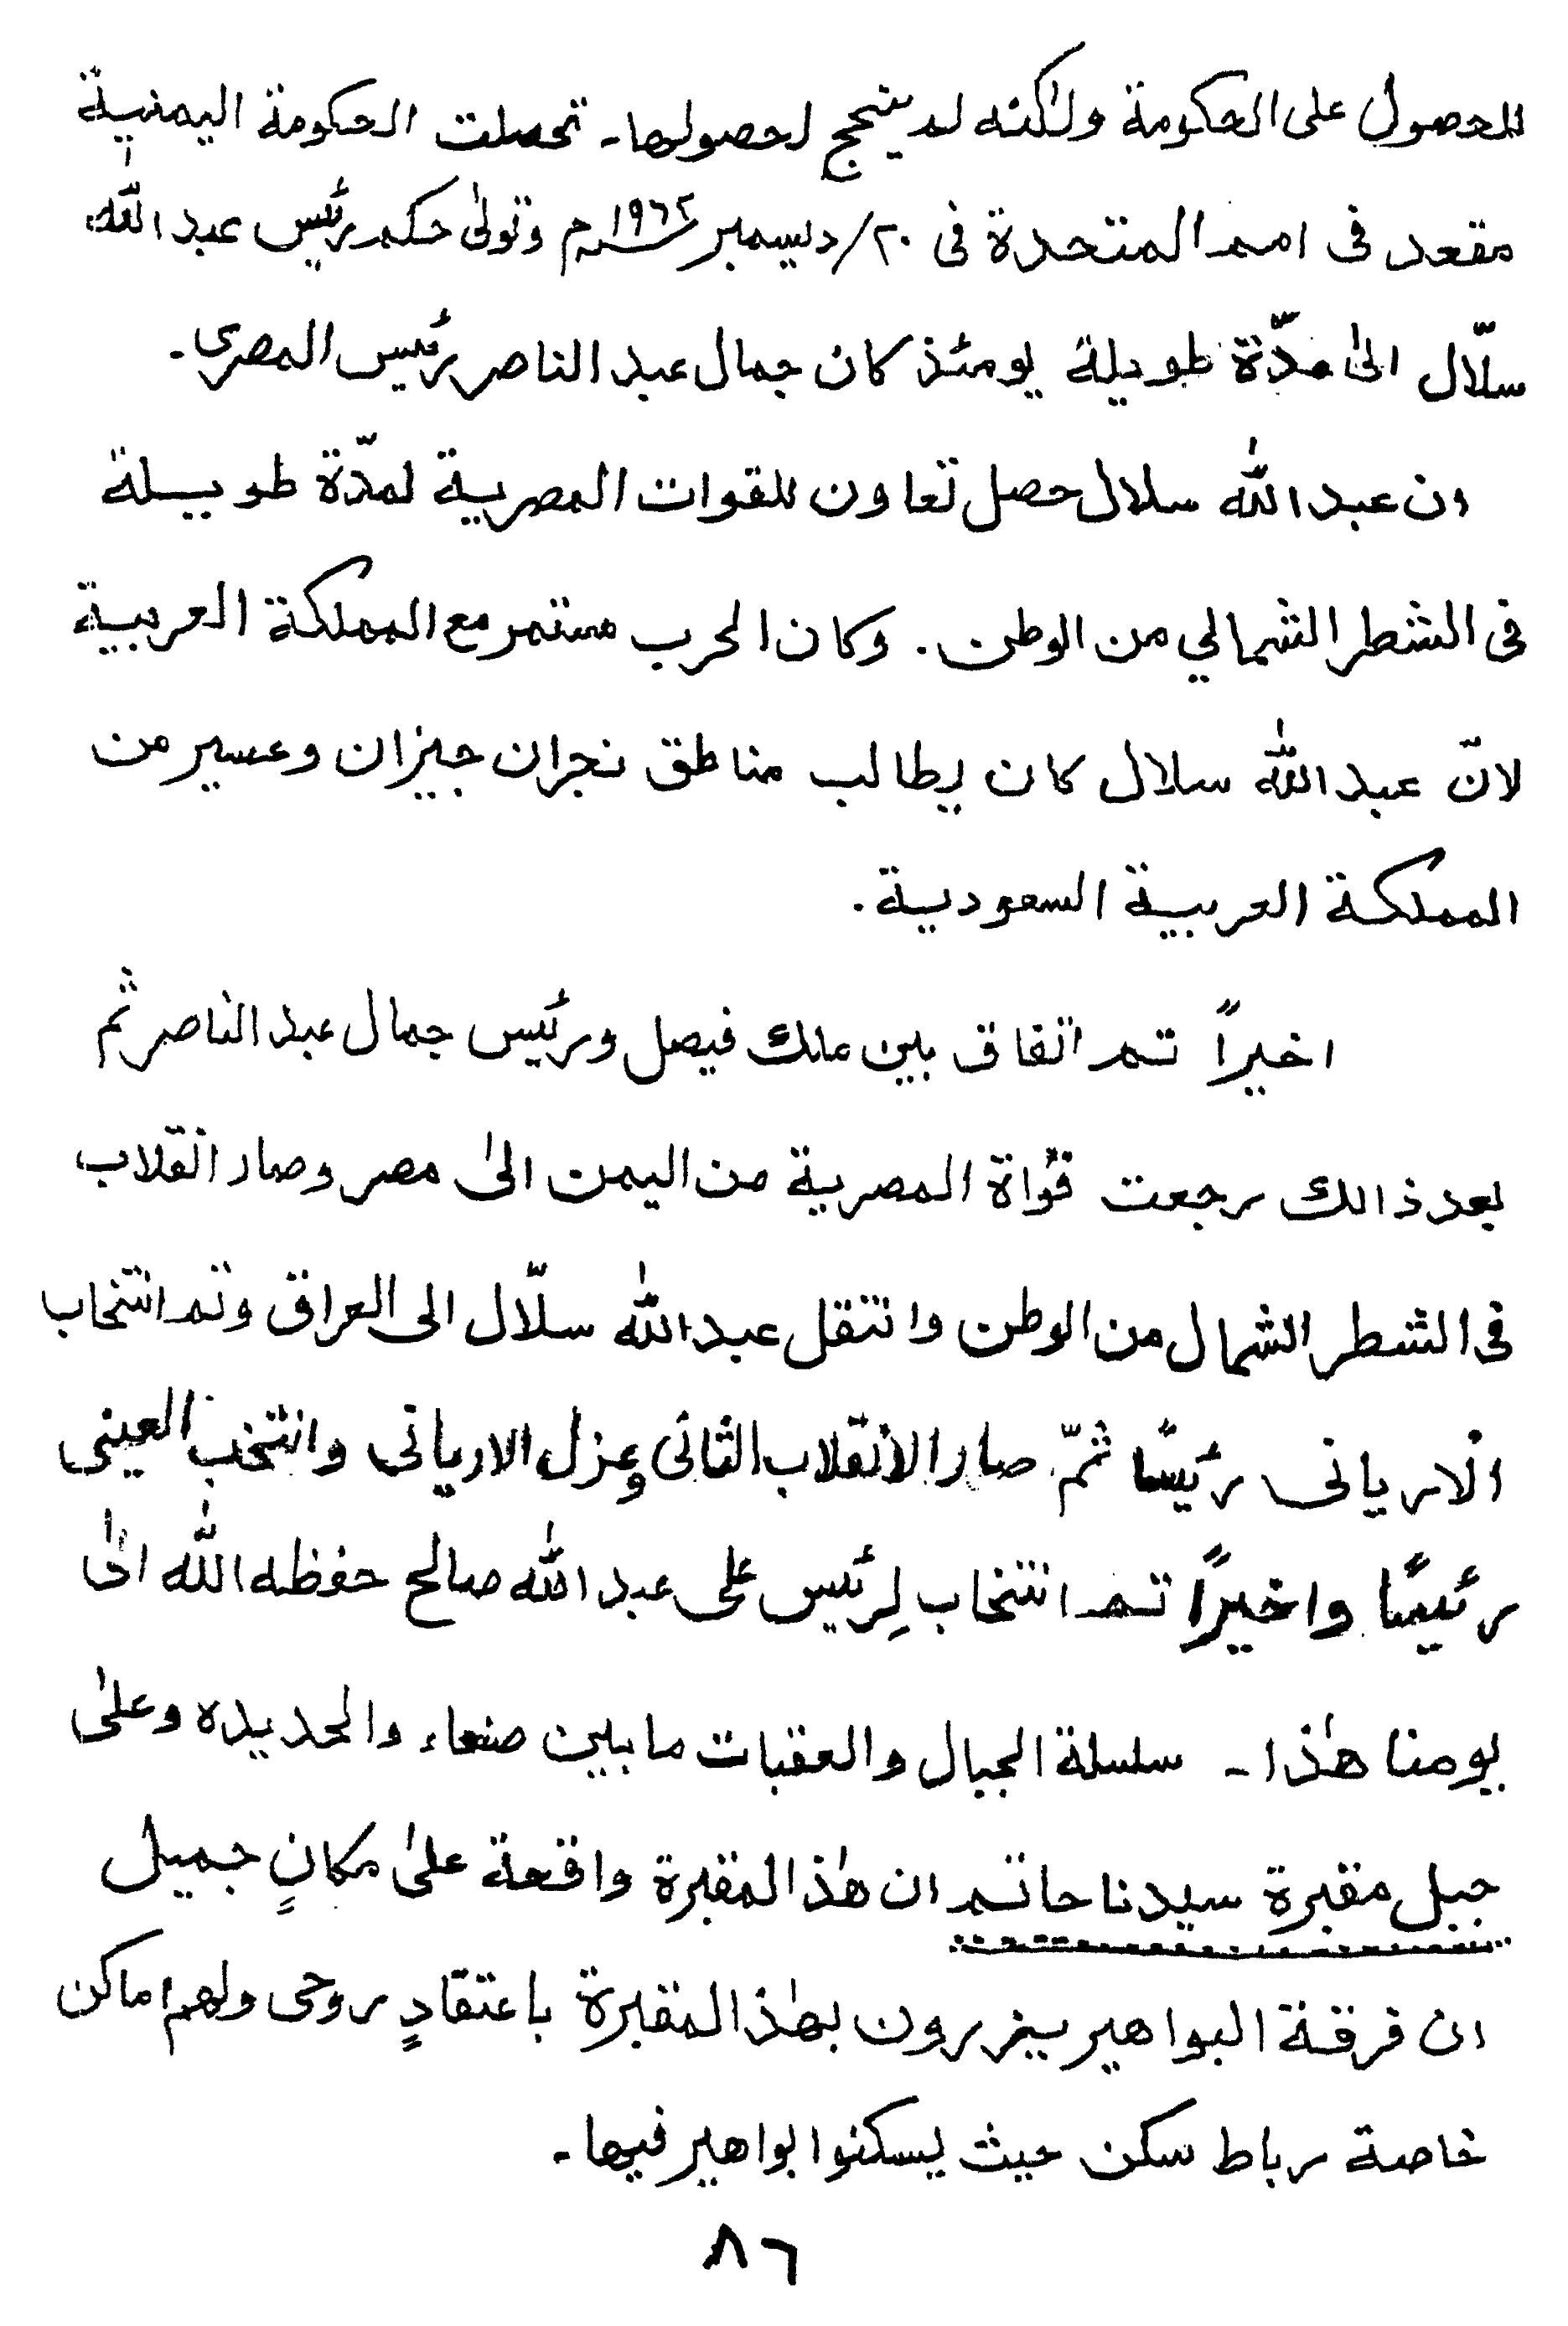 للحصول على الحكومة ولٰكنه لم ينجح لحصولها ـ تحصلت الحكومة اليمنية
مقعد فى امم المتحدة فى ٢٠/ دسيمبر ١٩٦٢م وتولىٰ حكم رئيس عبد اللّٰه
سلّال الىٰ مدّة طويلة يومئذ كان جمال عبد الناصر رئيس المصرى ـ
ان عبد اللّٰه سلال حصل تعاون للقوات المصرية لمدّة طويلة
فى الشطر الشمالي من الوطن . وكان الحرب مستمر مع المملكة العربية
لانّ عبد اللّٰه سلال كان يطالب مناطق نجران جيزان وعسير من
المملكة العربية السعودية .
اخيراً تم اتفاق بين ملك فيصل ورئيس جمال عبد الناصر ثم
بعد ذالك رجعت قوٌاة المصرية من اليمن الىٰ مصر وصار انقلاب
فى الشطر الشمال من الوطن وانتقل عبد اللّٰه سلّال الى العراق وتم انتخاب
الارياني رئيسًا ثمّ صار الأنقلاب الثانى وعزل الاريانى وانتخب العينى
رئيسًا واخيراً تم انتخاب لِرئيس على عبد اللّٰه صالح حفظه اللّٰه الىٰ
يومنا هٰذا ـ سلسلة الجبال والعقبات ما بين صنعاء والحديده وعلىٰ
جبل مقبرة سيدنا حاتم ان هٰذ المقبرة واقعة علىٰ مكانٍ جميل
ان فرقة البواهير يزرون بهٰذ المقبرة باعتقادٍ روحى ولهم اماكن
خاصة رباط سكن حيث يسكنوا بواهير فيها ـ
٨٦